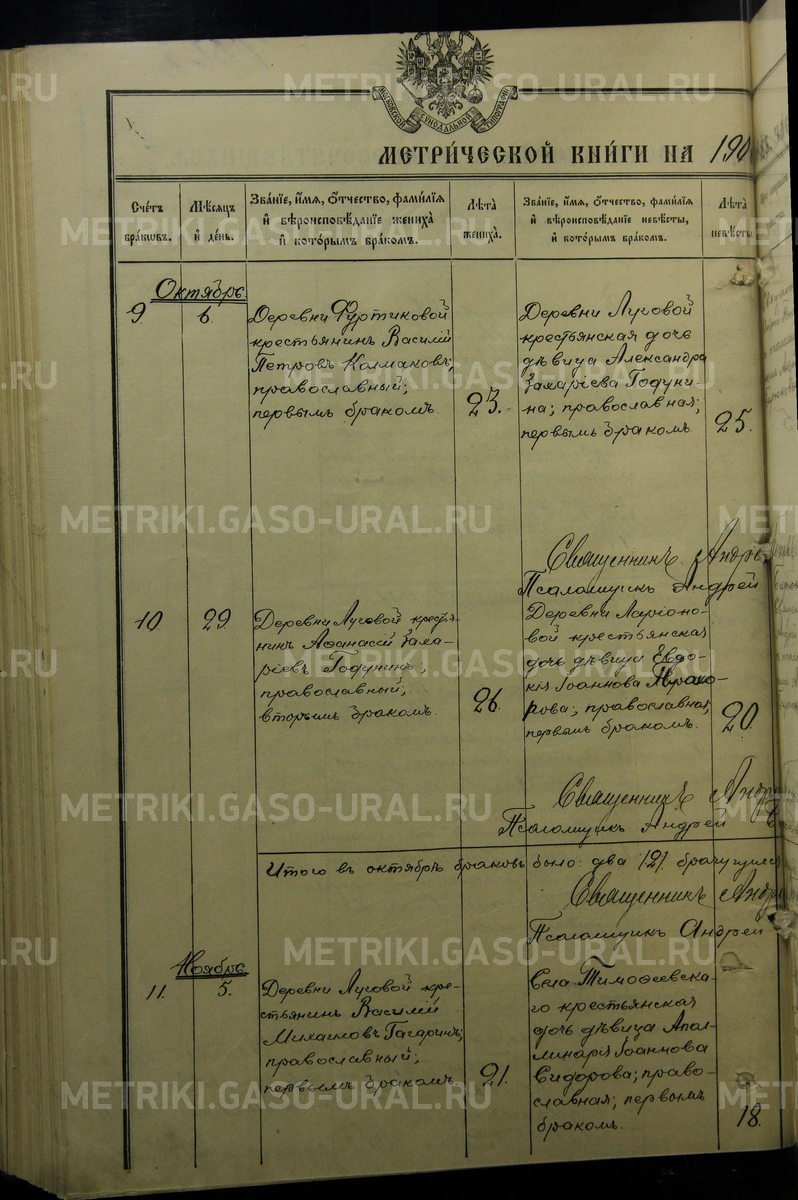 МОСКОВСКОЙ СѴНОДАЛЬНОЙ ТИПОГРАФІИ
МЕТРИ́ЧЕСКОЙ КНИ́ГИ НА 190
Сче́тъ бра́кωвъ.
Мѣ́сяцъ и҆ де́нь.
Зва́нїе, и҆́мя, ѻ҆́тчество, фами́лїя и҆ вѣроисповѣ́данїе жениха̀ и҆ кото́рымъ бра́комъ.
Лѣ̑та жениха̀.
Зва́нїе, и҆́мя, ѻ҆́тчество, фами́лїя и҆ вѣроисповѣ́данїе невѣ́сты, и҆ кото́рымъ бра́комъ.
Лѣ̑та невѣ́сты
Октябрь.
9.
6.
Деревни Фуртиковой
крестьянинъ Василій
Петровъ Колмаковъ;
православный;
первымъ бракомъ.
23.
Деревни Луговой
крестьянская дочь
дѣвица Александра
Захаріева Годуни-
на; православная;
первымъ бракомъ.
25.
Священникъ Андре
Псаломщикъ Андрей
10
29
Деревни Луговой кресть-
янинъ Аѳанасій Заха-
ріевъ Годунинъ;
православный;
вторымъ бракомъ.
26.
Деревни Ларіоно-
вой крестьянская
дочь дѣвица Евдо-
кія Іоаннова
православная,
первымъ бракомъ.
20.
Священникъ Андр
Псаломщикъ Андрей
Итого въ октябрѣ браковъ было: два /2/.
Священникъ Андр
Псаломщикъ Андрей
Ноябрь.
11.
5.
Деревни Луговой кре-
стьянинъ Василій
Михаиловъ Гагаринъ;
православный;
первымъ бракомъ
21.
Села Тимоѳеевска-
го крестьянская
дочь дѣвица Апол-
линарія Іоаннова
Сидорова; право-
славная; первымъ
бракомъ.
18.
METRIKI.GASO-URAL.RU